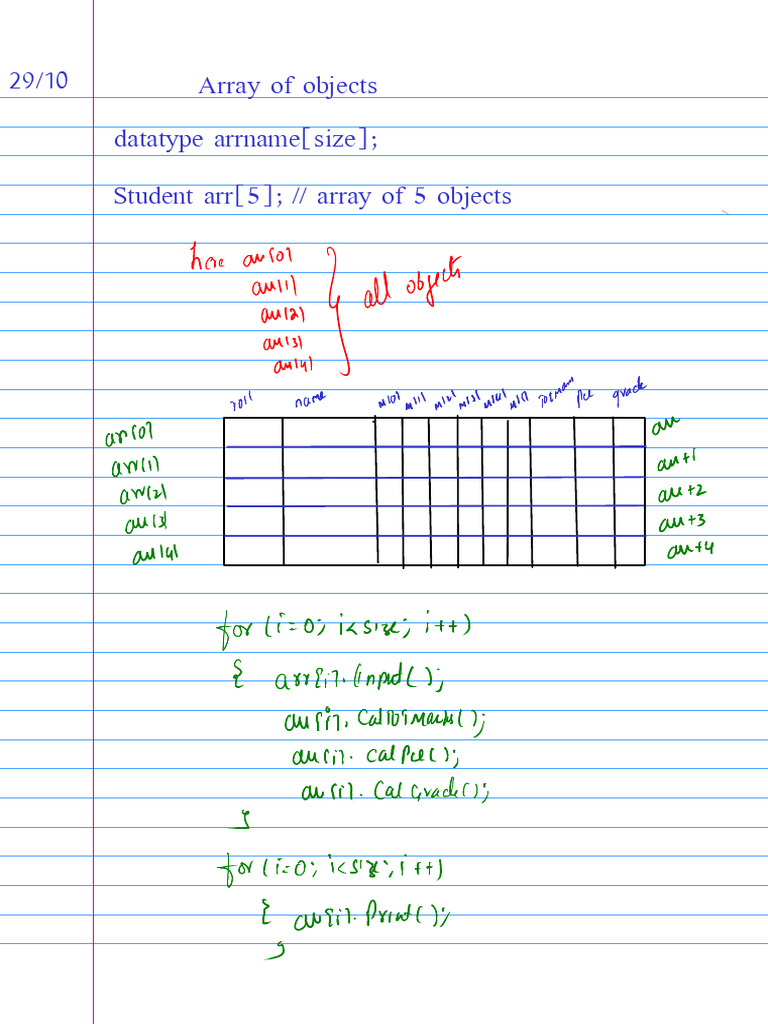 29/10
Array of objects
datatype arrname[size];
Student arr[5]; // array of 5 objects
here arr[0]
arr[1]
arr[2]
arr[3]
arr[4]
all objects
roll name m[0] m[1] m[2] m[3] m[4] m[5] TotMarks Per grade
arr[0] arr
arr[1] arr+1
arr[2] arr+2
arr[3] arr+3
arr[4] arr+4
for (i=0; i<size; i++)
{ arr[i].input();
arr[i].CalTotMarks();
arr[i].CalPer();
arr[i].CalGrade();
}
for (i=0; i<size; i++)
{ arr[i].Print();
}